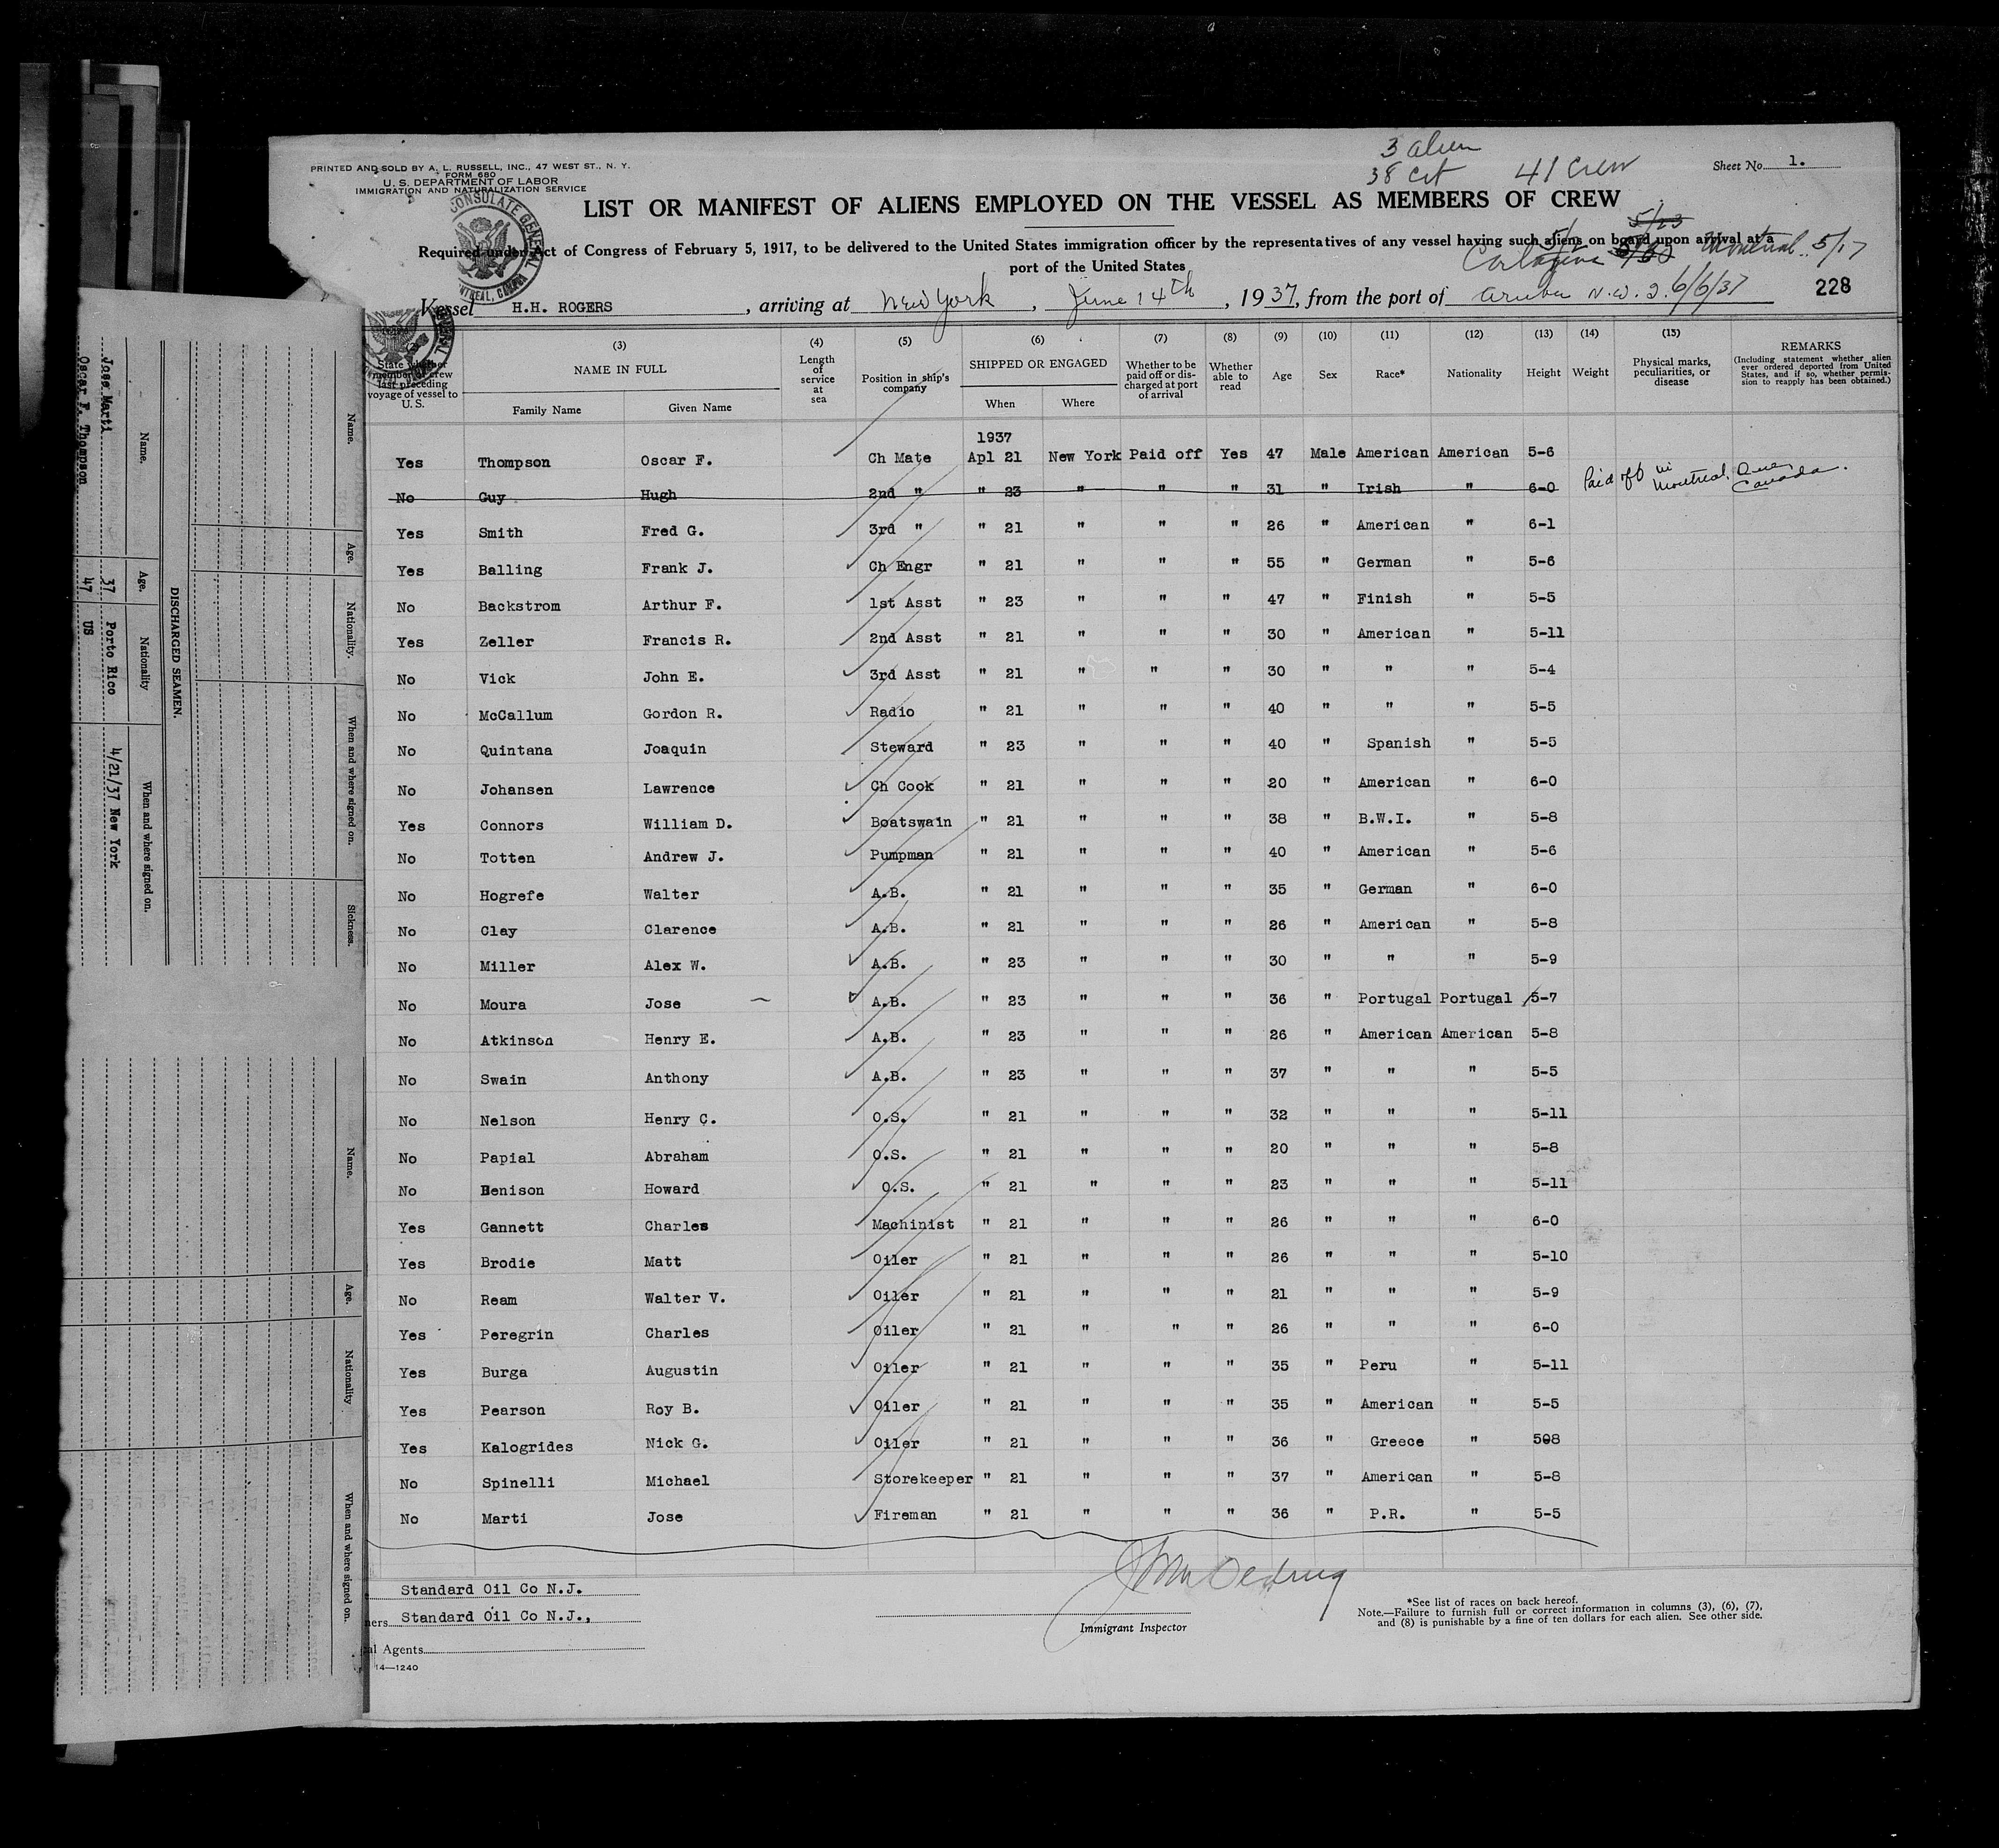 3 alien
38 cit 41 Crew
Sheet No. 1.
PRINTED AND SOLD BY A. L. RUSSELL, INC., 47 WEST ST., N. Y.
FORM 680
U. S. DEPARTMENT OF LABOR
IMMIGRATION AND NATURALIZATION SERVICE
LIST OR MANIFEST OF ALIENS EMPLOYED ON THE VESSEL AS MEMBERS OF CREW
Required under Act of Congress of February 5, 1917, to be delivered to the United States immigration officer by the representatives of any vessel having such aliens on board upon arrival at a
port of the United States
5/23
Cartagena 5/2 Montreal 5/17
Vessel H.H. ROGERS, arriving at New York, June 14th, 1937, from the port of Aruba N.W.I. 6/6/37
228
CONSULATE GENERAL
MONTREAL, CANADA
(2) State whether member of crew last preceding voyage of vessel to U. S.
(3) NAME IN FULL
Family Name Given Name
(4) Length of service at sea
(5) Position in ship's company
(6) SHIPPED OR ENGAGED
When Where
(7) Whether to be paid off or discharged at port of arrival
(8) Whether able to read
(9) Age
(10) Sex
(11) Race*
(12) Nationality
(13) Height
(14) Weight
(15) Physical marks, peculiarities, or disease
REMARKS
(Including statement whether alien ever ordered deported from United States, and if so, whether permission to reapply has been obtained.)
1937
Yes Thompson Oscar F. Ch Mate Apl 21 New York Paid off Yes 47 Male American American 5-6
No Guy Hugh 2nd " " 23 " " " 31 " Irish " 6-0 Paid off in Montreal, Que, Canada.
Yes Smith Fred G. 3rd " " 21 " " " 26 " American " 6-1
Yes Balling Frank J. Ch Engr " 21 " " " 55 " German " 5-6
No Backstrom Arthur F. 1st Asst " 23 " " " 47 " Finish " 5-5
Yes Zeller Francis R. 2nd Asst " 21 " " " 30 " American " 5-11
No Vick John E. 3rd Asst " 21 " " " 30 " " " 5-4
No McCallum Gordon R. Radio " 21 " " " 40 " " " 5-5
No Quintana Joaquin Steward " 23 " " " 40 " Spanish " 5-5
No Johansen Lawrence Ch Cook " 21 " " " 20 " American " 6-0
Yes Connors William D. Boatswain " 21 " " " 38 " B.W.I. " 5-8
No Totten Andrew J. Pumpman " 21 " " " 40 " American " 5-6
No Hogrefe Walter A.B. " 21 " " " 35 " German " 6-0
No Clay Clarence A.B. " 21 " " " 26 " American " 5-8
No Miller Alex W. A.B. " 23 " " " 30 " " " 5-9
No Moura Jose A.B. " 23 " " " 36 " Portugal Portugal 5-7
No Atkinson Henry E. A.B. " 23 " " " 26 " American American 5-8
No Swain Anthony A.B. " 23 " " " 37 " " " 5-5
No Nelson Henry C. O.S. " 21 " " " 32 " " " 5-11
No Papial Abraham O.S. " 21 " " " 20 " " " 5-8
No Denison Howard O.S. " 21 " " " 23 " " " 5-11
Yes Gannett Charles Machinist " 21 " " " 26 " " " 6-0
Yes Brodie Matt Oiler " 21 " " " 26 " " " 5-10
No Ream Walter V. Oiler " 21 " " " 21 " " " 5-9
Yes Peregrin Charles Oiler " 21 " " " 26 " " " 6-0
Yes Burga Augustin Oiler " 21 " " " 35 " Peru " 5-11
Yes Pearson Roy B. Oiler " 21 " " " 35 " American " 5-5
Yes Kalogrides Nick G. Oiler " 21 " " " 36 " Greece " 508
No Spinelli Michael Storekeeper " 21 " " " 37 " American " 5-8
No Marti Jose Fireman " 21 " " " 36 " P.R. " 5-5
Standard Oil Co N.J.
ners Standard Oil Co N.J.,
al Agents
14—1240
Immigrant Inspector
*See list of races on back hereof.
Note.—Failure to furnish full or correct information in columns (3), (6), (7),
and (8) is punishable by a fine of ten dollars for each alien. See other side.
Name. Age. Nationality. When and where signed on. Sickness.
DISCHARGED SEAMEN.
Name. Age. Nationality When and where signed on.
Jose Marti 37 Porto Rico 4/21/37 New York
Oscar F. Thompson 47 US
Name. Age. Nationality When and where signed on.